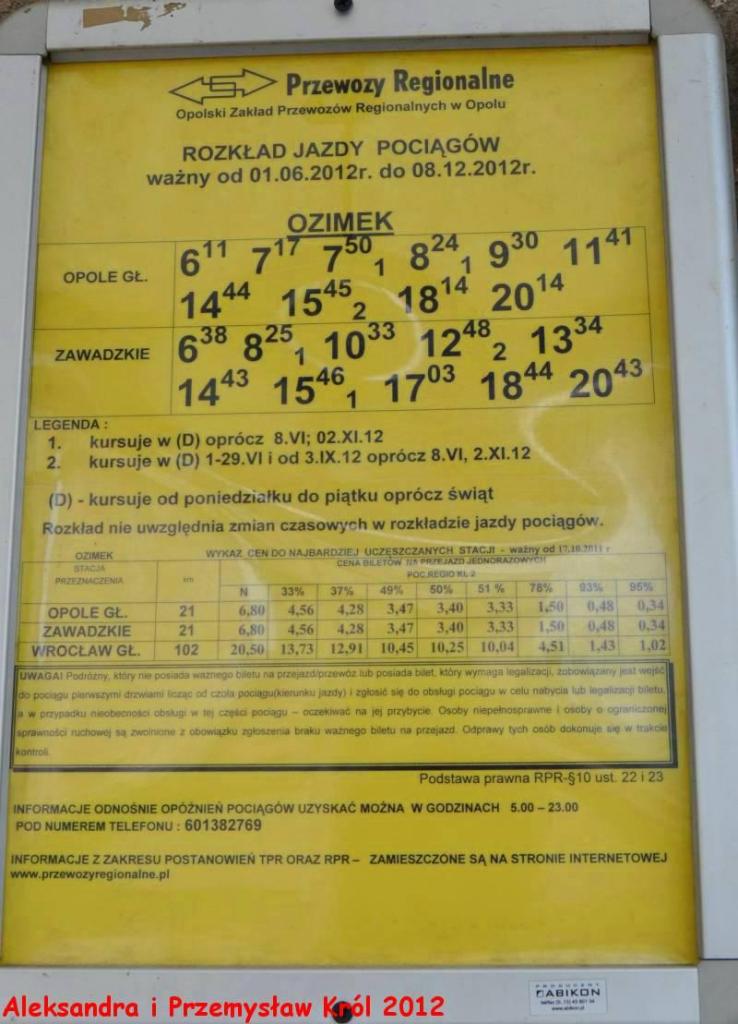 Przewozy Regionalne
Opolski Zakład Przewozów Regionalnych w Opolu
ROZKŁAD JAZDY POCIĄGÓW
ważny od 01.06.2012r. do 08.12.2012r.
OZIMEK
OPOLE GŁ. 6¹¹ 7¹⁷ 7⁵⁰ ₁ 8²⁴ ₁ 9³⁰ 11⁴¹
14⁴⁴ 15⁴⁵ ₂ 18¹⁴ 20¹⁴
ZAWADZKIE 6³⁸ 8²⁵ ₁ 10³³ 12⁴⁸ ₂ 13³⁴
14⁴³ 15⁴⁶ ₁ 17⁰³ 18⁴⁴ 20⁴³
LEGENDA :
1. kursuje w (D) oprócz 8.VI; 02.XI.12
2. kursuje w (D) 1-29.VI i od 3.IX.12 oprócz 8.VI, 2.XI.12
(D) - kursuje od poniedziałku do piątku oprócz świąt
Rozkład nie uwzględnia zmian czasowych w rozkładzie jazdy pociągów.
OZIMEK WYKAZ CEN DO NAJBARDZIEJ UCZĘSZCZANYCH STACJI - ważny od 17.10.2011 r
STACJA PRZEZNACZENIA km CENA BILETÓW NA PRZEJAZD JEDNORAZOWYCH
POC.REGIO KL 2
N 33% 37% 49% 50% 51 % 78% 93% 95%
OPOLE GŁ. 21 6,80 4,56 4,28 3,47 3,40 3,33 1,50 0,48 0,34
ZAWADZKIE 21 6,80 4,56 4,28 3,47 3,40 3,33 1,50 0,48 0,34
WROCŁAW GŁ. 102 20,50 13,73 12,91 10,45 10,25 10,04 4,51 1,43 1,02
UWAGA! Podróżny, który nie posiada ważnego biletu na przejazd/przewóz lub posiada bilet, który wymaga legalizacji, zobowiązany jest wejść
do pociągu pierwszymi drzwiami licząc od czoła pociągu(kierunku jazdy) i zgłosić się do obsługi pociągu w celu nabycia lub legalizacji biletu,
a w przypadku nieobecności obsługi w tej części pociągu – oczekiwać na jej przybycie. Osoby niepełnosprawne i osoby o ograniczonej
sprawności ruchowej są zwolnione z obowiązku zgłoszenia braku ważnego biletu na przejazd. Odprawy tych osób dokonuje się w trakcie
kontroli.
Podstawa prawna RPR-§10 ust. 22 i 23
INFORMACJE ODNOŚNIE OPÓŹNIEŃ POCIĄGÓW UZYSKAĆ MOŻNA W GODZINACH 5.00 – 23.00
POD NUMEREM TELEFONU : 601382769
INFORMACJE Z ZAKRESU POSTANOWIEŃ TPR ORAZ RPR – ZAMIESZCZONE SĄ NA STRONIE INTERNETOWEJ
www.przewozyregionalne.pl
PRODUCENT
ABIKON
www.abikon.pl
Aleksandra i Przemysław Król 2012